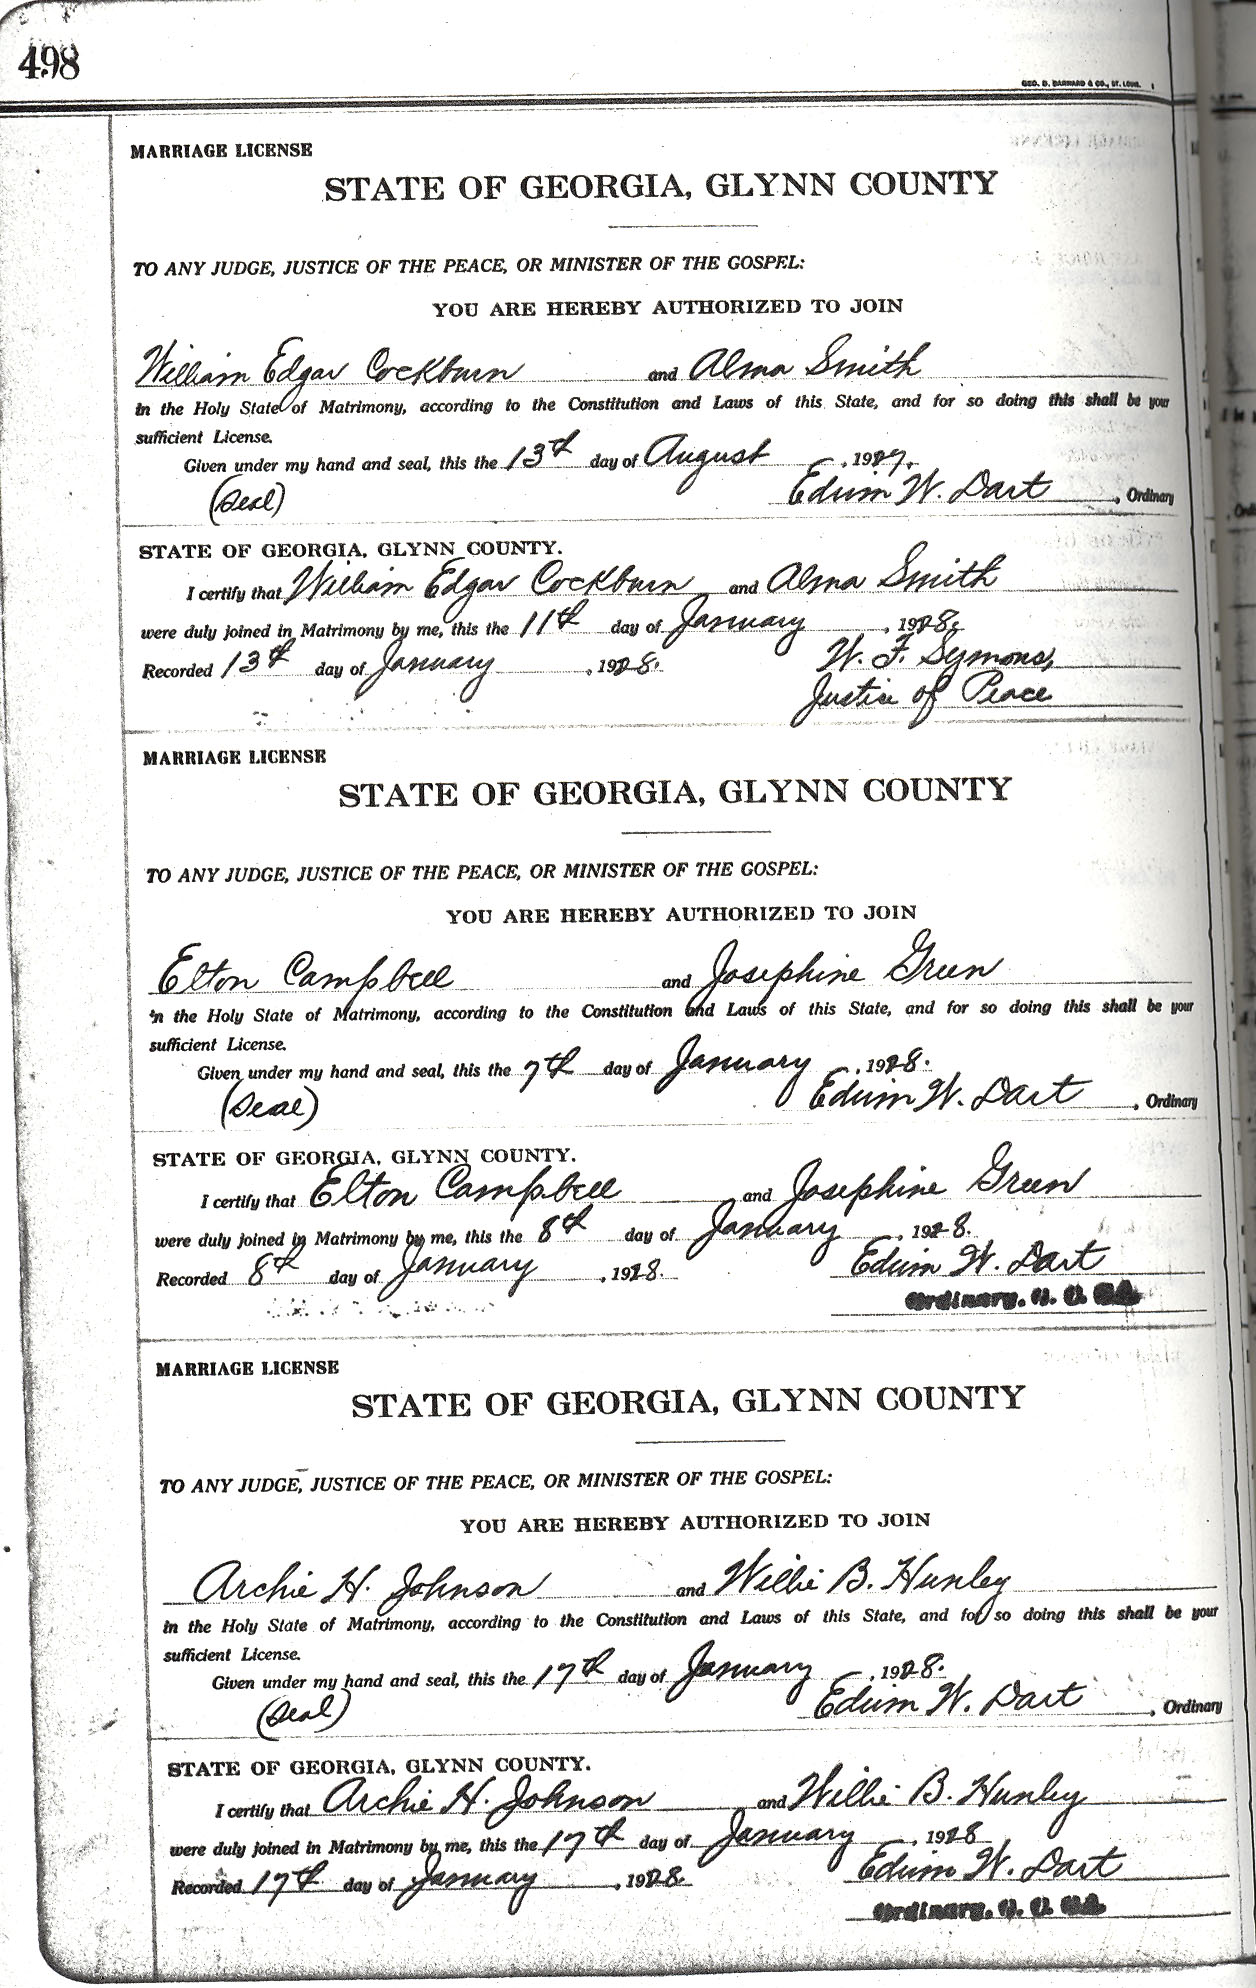 498
GEO. D. BARNARD & CO., ST. LOUIS.
MARRIAGE LICENSE
STATE OF GEORGIA, GLYNN COUNTY
TO ANY JUDGE, JUSTICE OF THE PEACE, OR MINISTER OF THE GOSPEL:
YOU ARE HEREBY AUTHORIZED TO JOIN
William Edgar Cockburn and Alma Smith
in the Holy State of Matrimony, according to the Constitution and Laws of this State, and for so doing this shall be your
sufficient License.
Given under my hand and seal, this the 13th day of August, 1927.
(Seal) Edwin W. Dart, Ordinary
STATE OF GEORGIA, GLYNN COUNTY.
I certify that William Edgar Cockburn and Alma Smith
were duly joined in Matrimony by me, this the 11th day of January, 1928.
Recorded 13th day of January, 1928. W. F. Symons,
Justice of Peace
MARRIAGE LICENSE
STATE OF GEORGIA, GLYNN COUNTY
TO ANY JUDGE, JUSTICE OF THE PEACE, OR MINISTER OF THE GOSPEL:
YOU ARE HEREBY AUTHORIZED TO JOIN
Elton Campbell and Josephine Green
in the Holy State of Matrimony, according to the Constitution and Laws of this State, and for so doing this shall be your
sufficient License.
Given under my hand and seal, this the 7th day of January, 1928.
(Seal) Edwin W. Dart, Ordinary
STATE OF GEORGIA, GLYNN COUNTY.
I certify that Elton Campbell and Josephine Green
were duly joined in Matrimony by me, this the 8th day of January, 1928.
Recorded 8th day of January, 1928. Edwin W. Dart
Ordinary,
MARRIAGE LICENSE
STATE OF GEORGIA, GLYNN COUNTY
TO ANY JUDGE, JUSTICE OF THE PEACE, OR MINISTER OF THE GOSPEL:
YOU ARE HEREBY AUTHORIZED TO JOIN
Archie H. Johnson and Willie B. Hunley
in the Holy State of Matrimony, according to the Constitution and Laws of this State, and for so doing this shall be your
sufficient License.
Given under my hand and seal, this the 17th day of January, 1928.
(Seal) Edwin W. Dart, Ordinary
STATE OF GEORGIA, GLYNN COUNTY.
I certify that Archie H. Johnson and Willie B. Hunley
were duly joined in Matrimony by me, this the 17th day of January, 1928
Recorded 17th day of January, 1928. Edwin W. Dart
Ordinary,